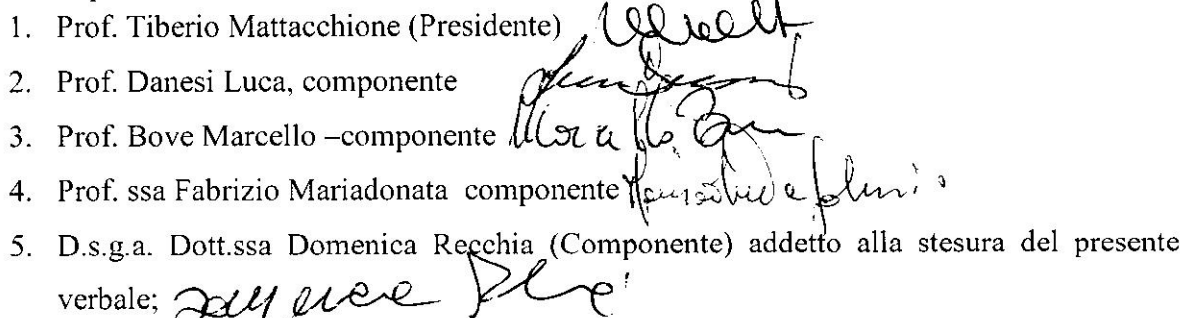 1. Prof. Tiberio Mattacchione (Presidente)
2. Prof. Danesi Luca, componente
3. Prof. Bove Marcello –componente
4. Prof. ssa Fabrizio Mariadonata componente
5. D.s.g.a. Dott.ssa Domenica Recchia (Componente) addetto alla stesura del presente
verbale;